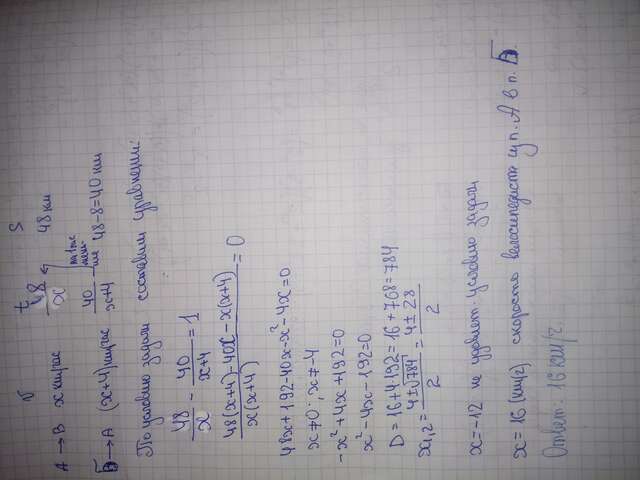 v t S
A → B x км/час 48/x 48 км
B → A (x+4) км/час 40/x+4 на 1 час меньше 48-8=40 км
По условию задачи составим уравнение:
48/x - 40/x+4 = 1
48(x+4)-40x-x(x+4)/x(x+4) = 0
48x+192-40x-x²-4x=0
x≠0; x≠-4
-x²+4x+192=0
x²-4x-192=0
D=16+4·192=16+768=784
x1,2 = 4±√784/2 = 4±28/2
x=-12 не удовлет. условию задачи
x=16 (км/ч) скорость велосипедиста из п. A в п. B
Ответ: 16 км/ч.